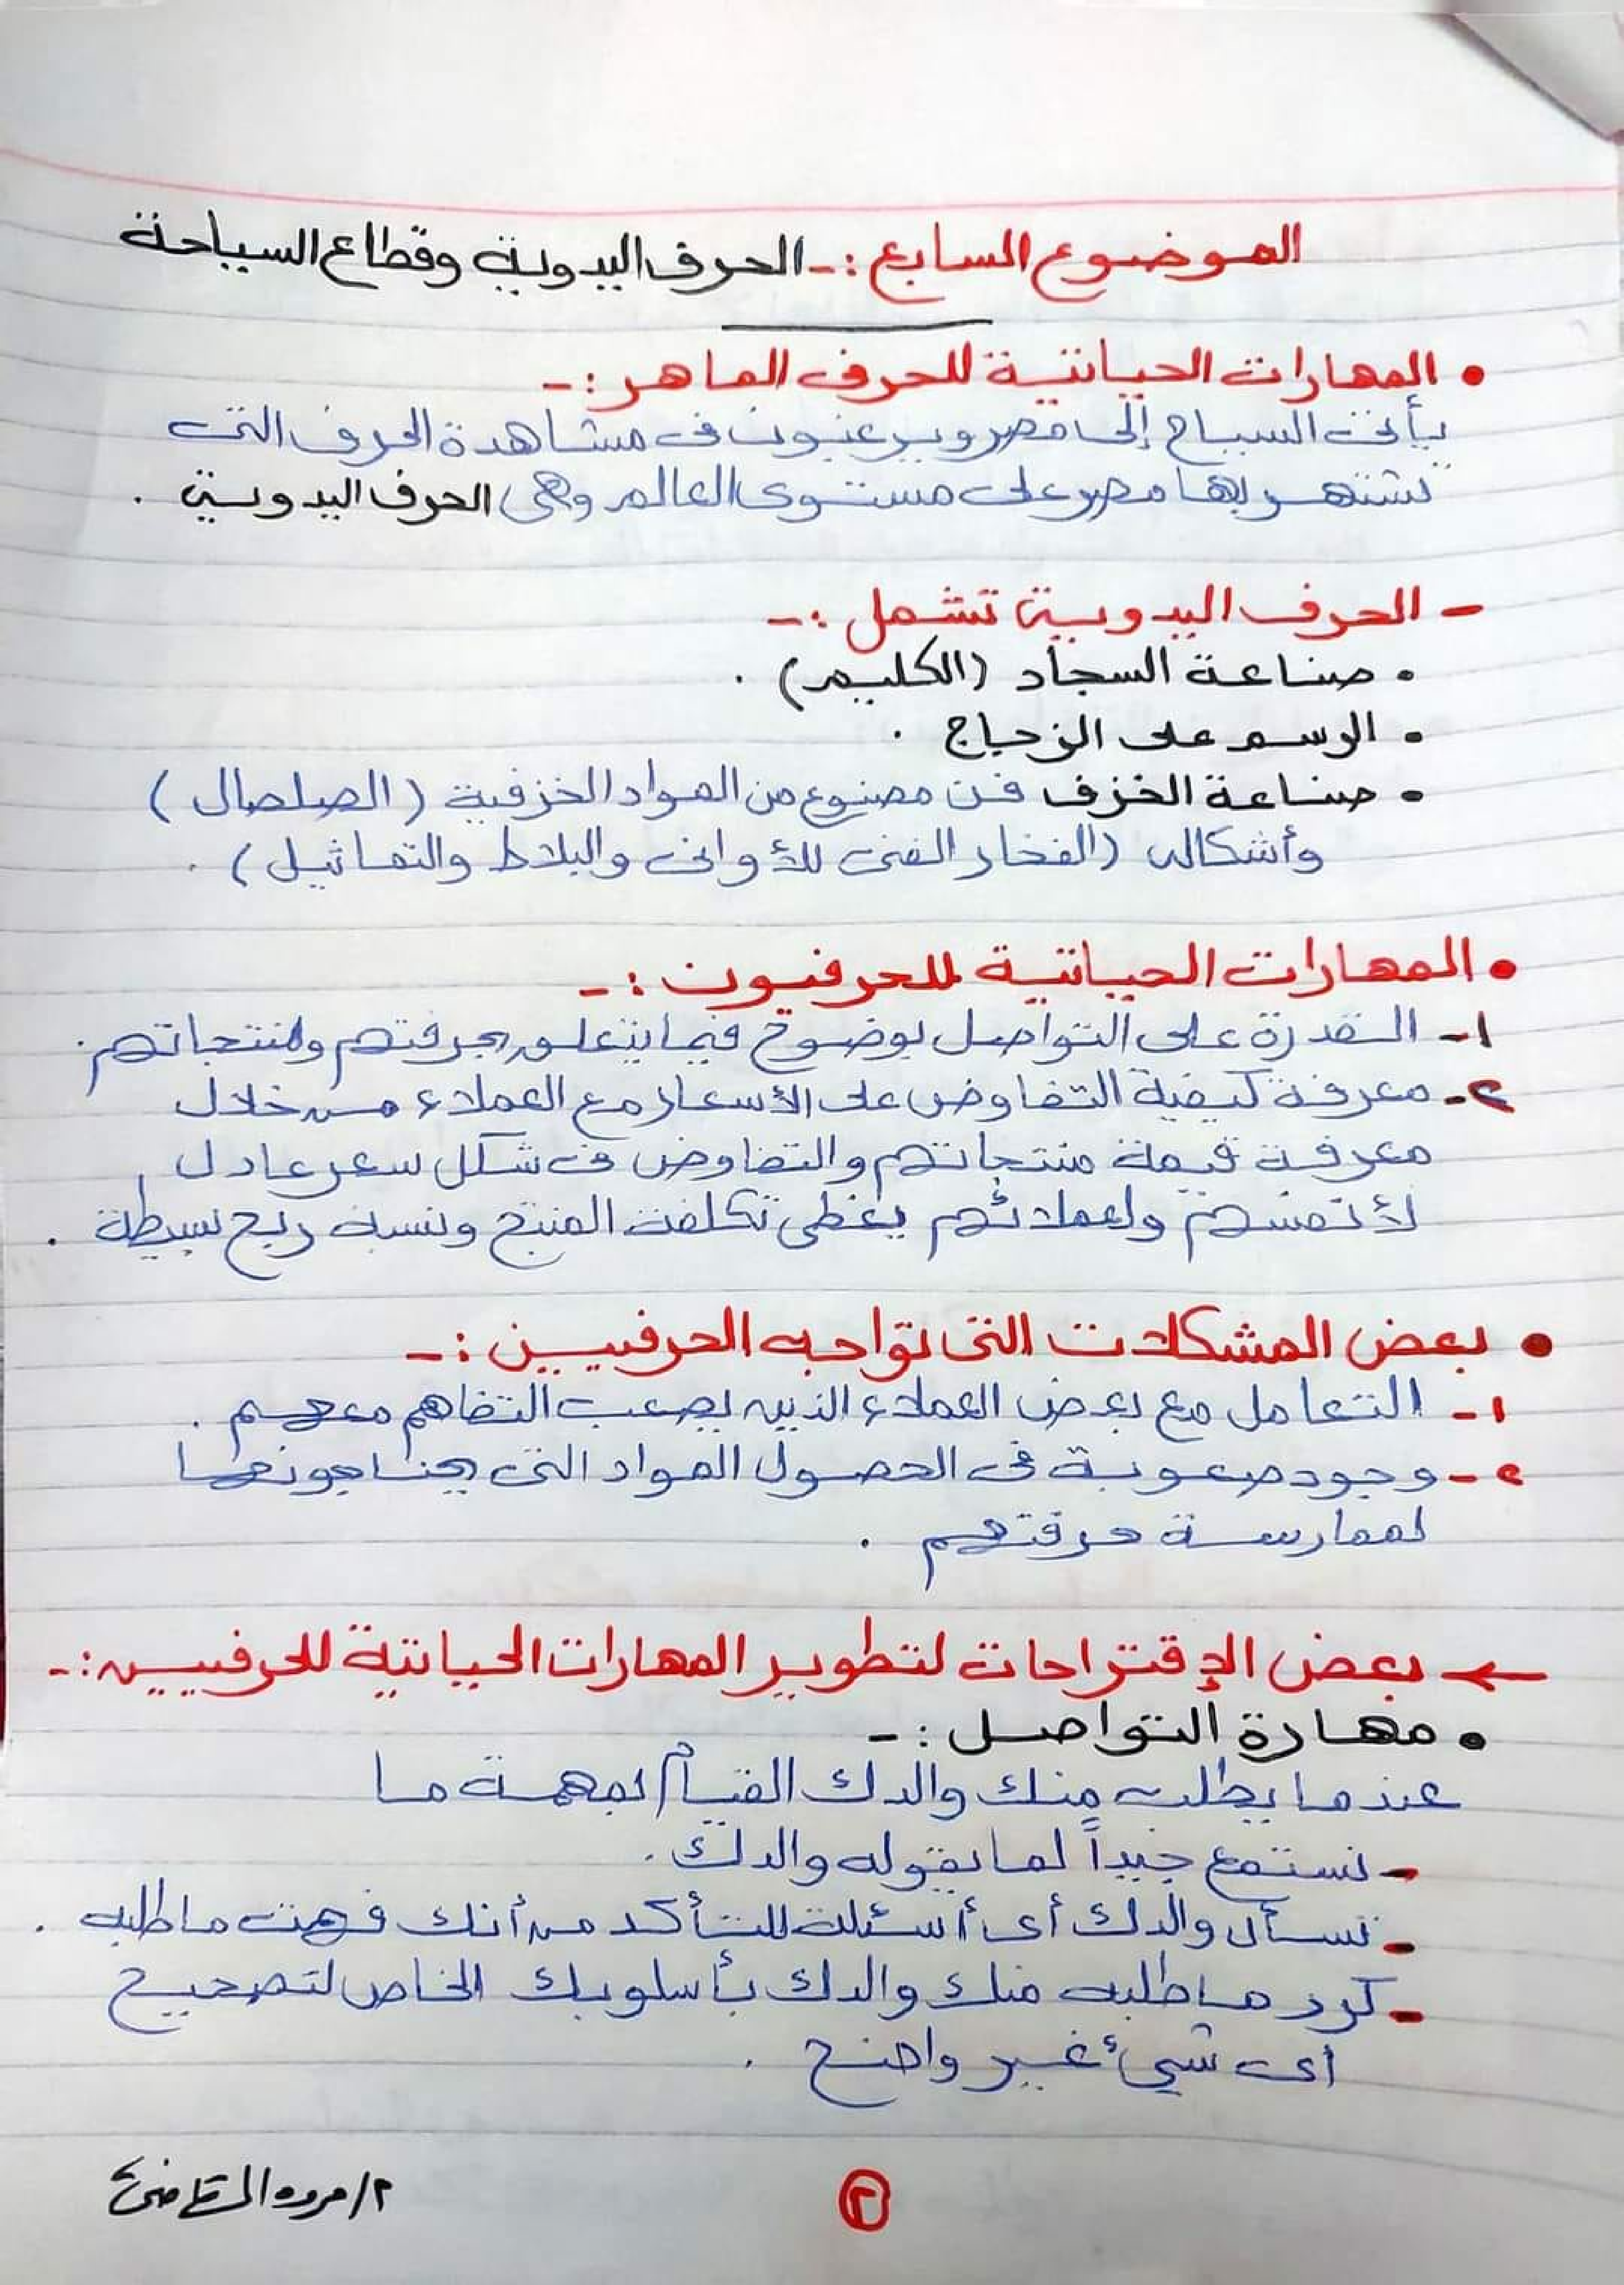 الموضوع السابع :- الحرف اليدوية وقطاع السياحة
• المهارات الحياتية للحرف الماهر :-
يأتى السياح إلى مصر ويرغبون فى مشاهدة الحرف التى
تشتهر بها مصر على مستوى العالم وهى الحرف اليدوية .
- الحرف اليدوية تشمل :-
• صناعة السجاد (الكليم) .
• الرسم على الزجاج .
• صناعة الخزف فن مصنوع من المواد الخزفية ( الصلصال )
وأشكاله (الفخار الفنى للأوانى والبلاط والتماثيل) .
• المهارات الحياتية للحرفيون :-
١- القدرة على التواصل بوضوح فيما يتعلق بحرفتهم ومنتجاتهم .
٢- معرفة كيفية التفاوض على الأسعار مع العملاء من خلال
معرفة قيمة منتجاتهم والتفاوض فى شكل سعر عادل
لأنفسهم ولعملائهم يغطى تكلفة المنتج ونسبة ربح بسيطة .
• بعض المشكلات التى تواجه الحرفيين :-
١- التعامل مع بعض العملاء الذين يصعب التفاهم معهم .
٢- وجود صعوبة فى الحصول المواد التى يحتاجونها
لممارسة حرفتهم .
← بعض الإقتراحات لتطوير المهارات الحياتية للحرفيين :-
• مهارة التواصل :-
عندما يطلب منك والدك القيام بمهمة ما
- تستمع جيداً لما يقوله والدك .
- تسأل والدك أى أسئلة للتأكد من أنك فهمت ما طلبه .
- كرر ما طلبه منك والدك بأسلوبك الخاص لتصحيح
أى شيء غير واضح .
٢
٢/مروه القاضى